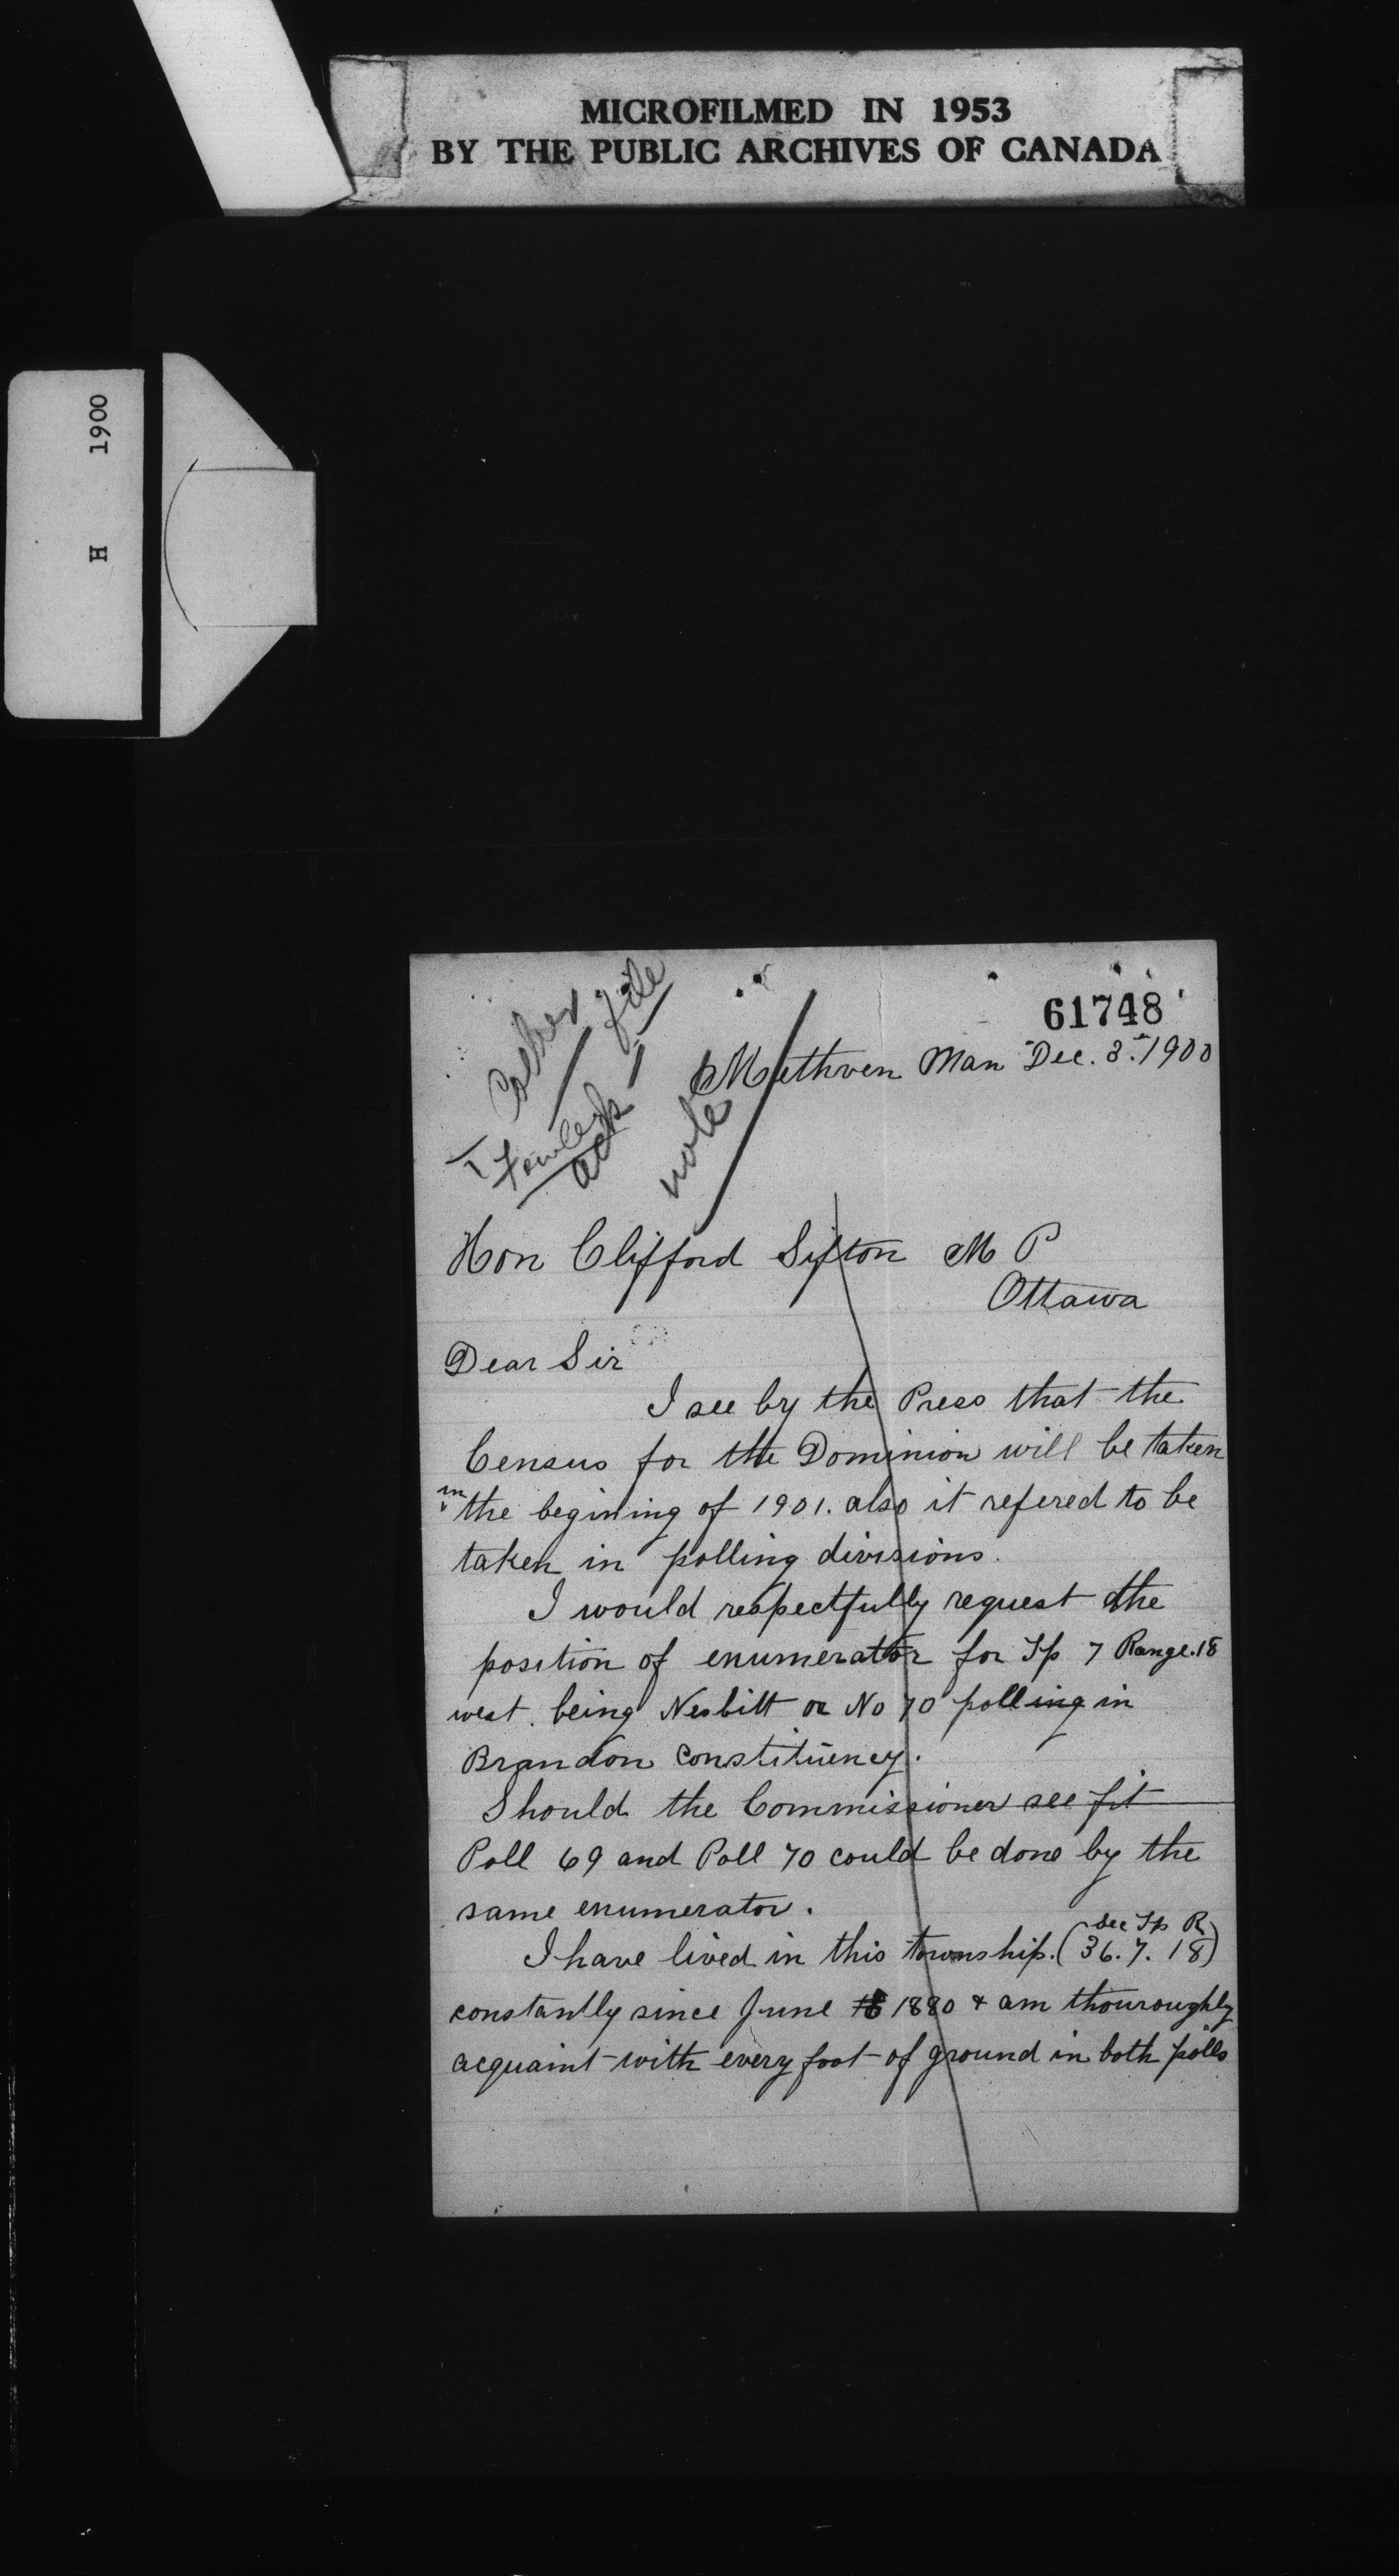 MICROFILMED IN 1953
BY THE PUBLIC ARCHIVES OF CANADA
H 1900
61748
file
ack
note
Methven Man Dec. 3. 1900
Hon Clifford Sifton M P
Ottawa
Dear Sir
I see by the Press that the
Census for the Dominion will be taken
in the begining of 1901. also it refered to be
taken in polling divisions.
I would respectfully request the
position of enumerator for Tp 7 Range.18
west. being Nesbitt or No 70 polling in
Brandon constituency.
Should the Commissioner see fit
Poll 69 and Poll 70 could be done by the
same enumerator.
Sec Tp R
I have lived in this township. (36. 7. 18)
constantly since June 1880 & am thouroughly
acquaint with every foot of ground in both polls